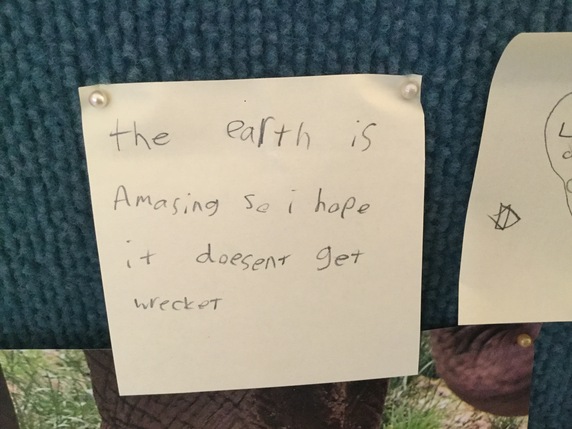 the earth is
Amasing so i hope
it doesent get
wrecket